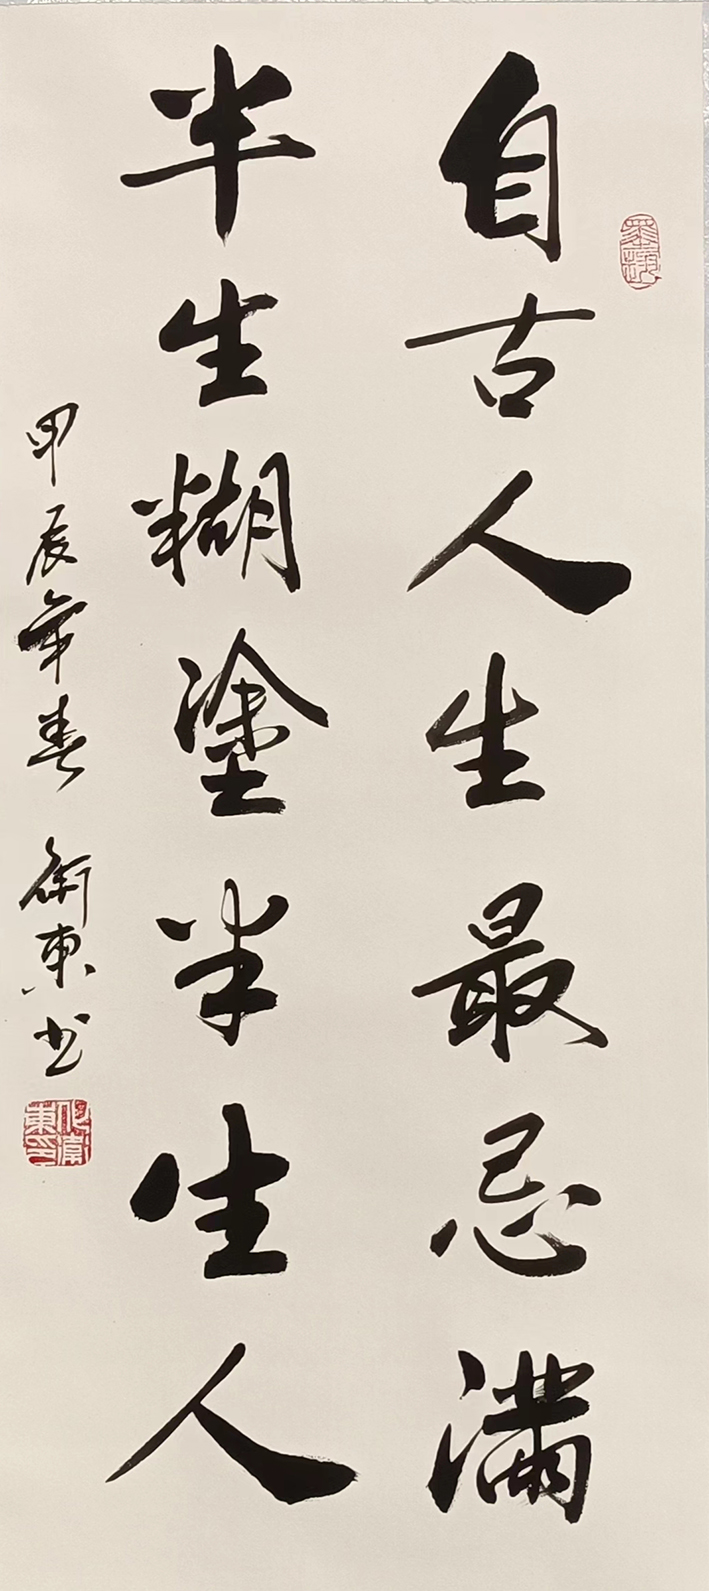 自古人生最忌滿
半生糊塗半生人
甲辰年春 衛東书